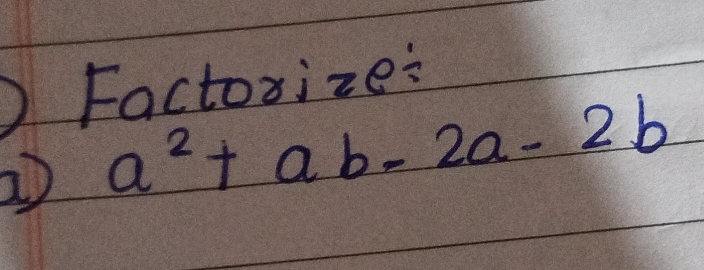 ) Factorize÷
a) a² + ab - 2a - 2b